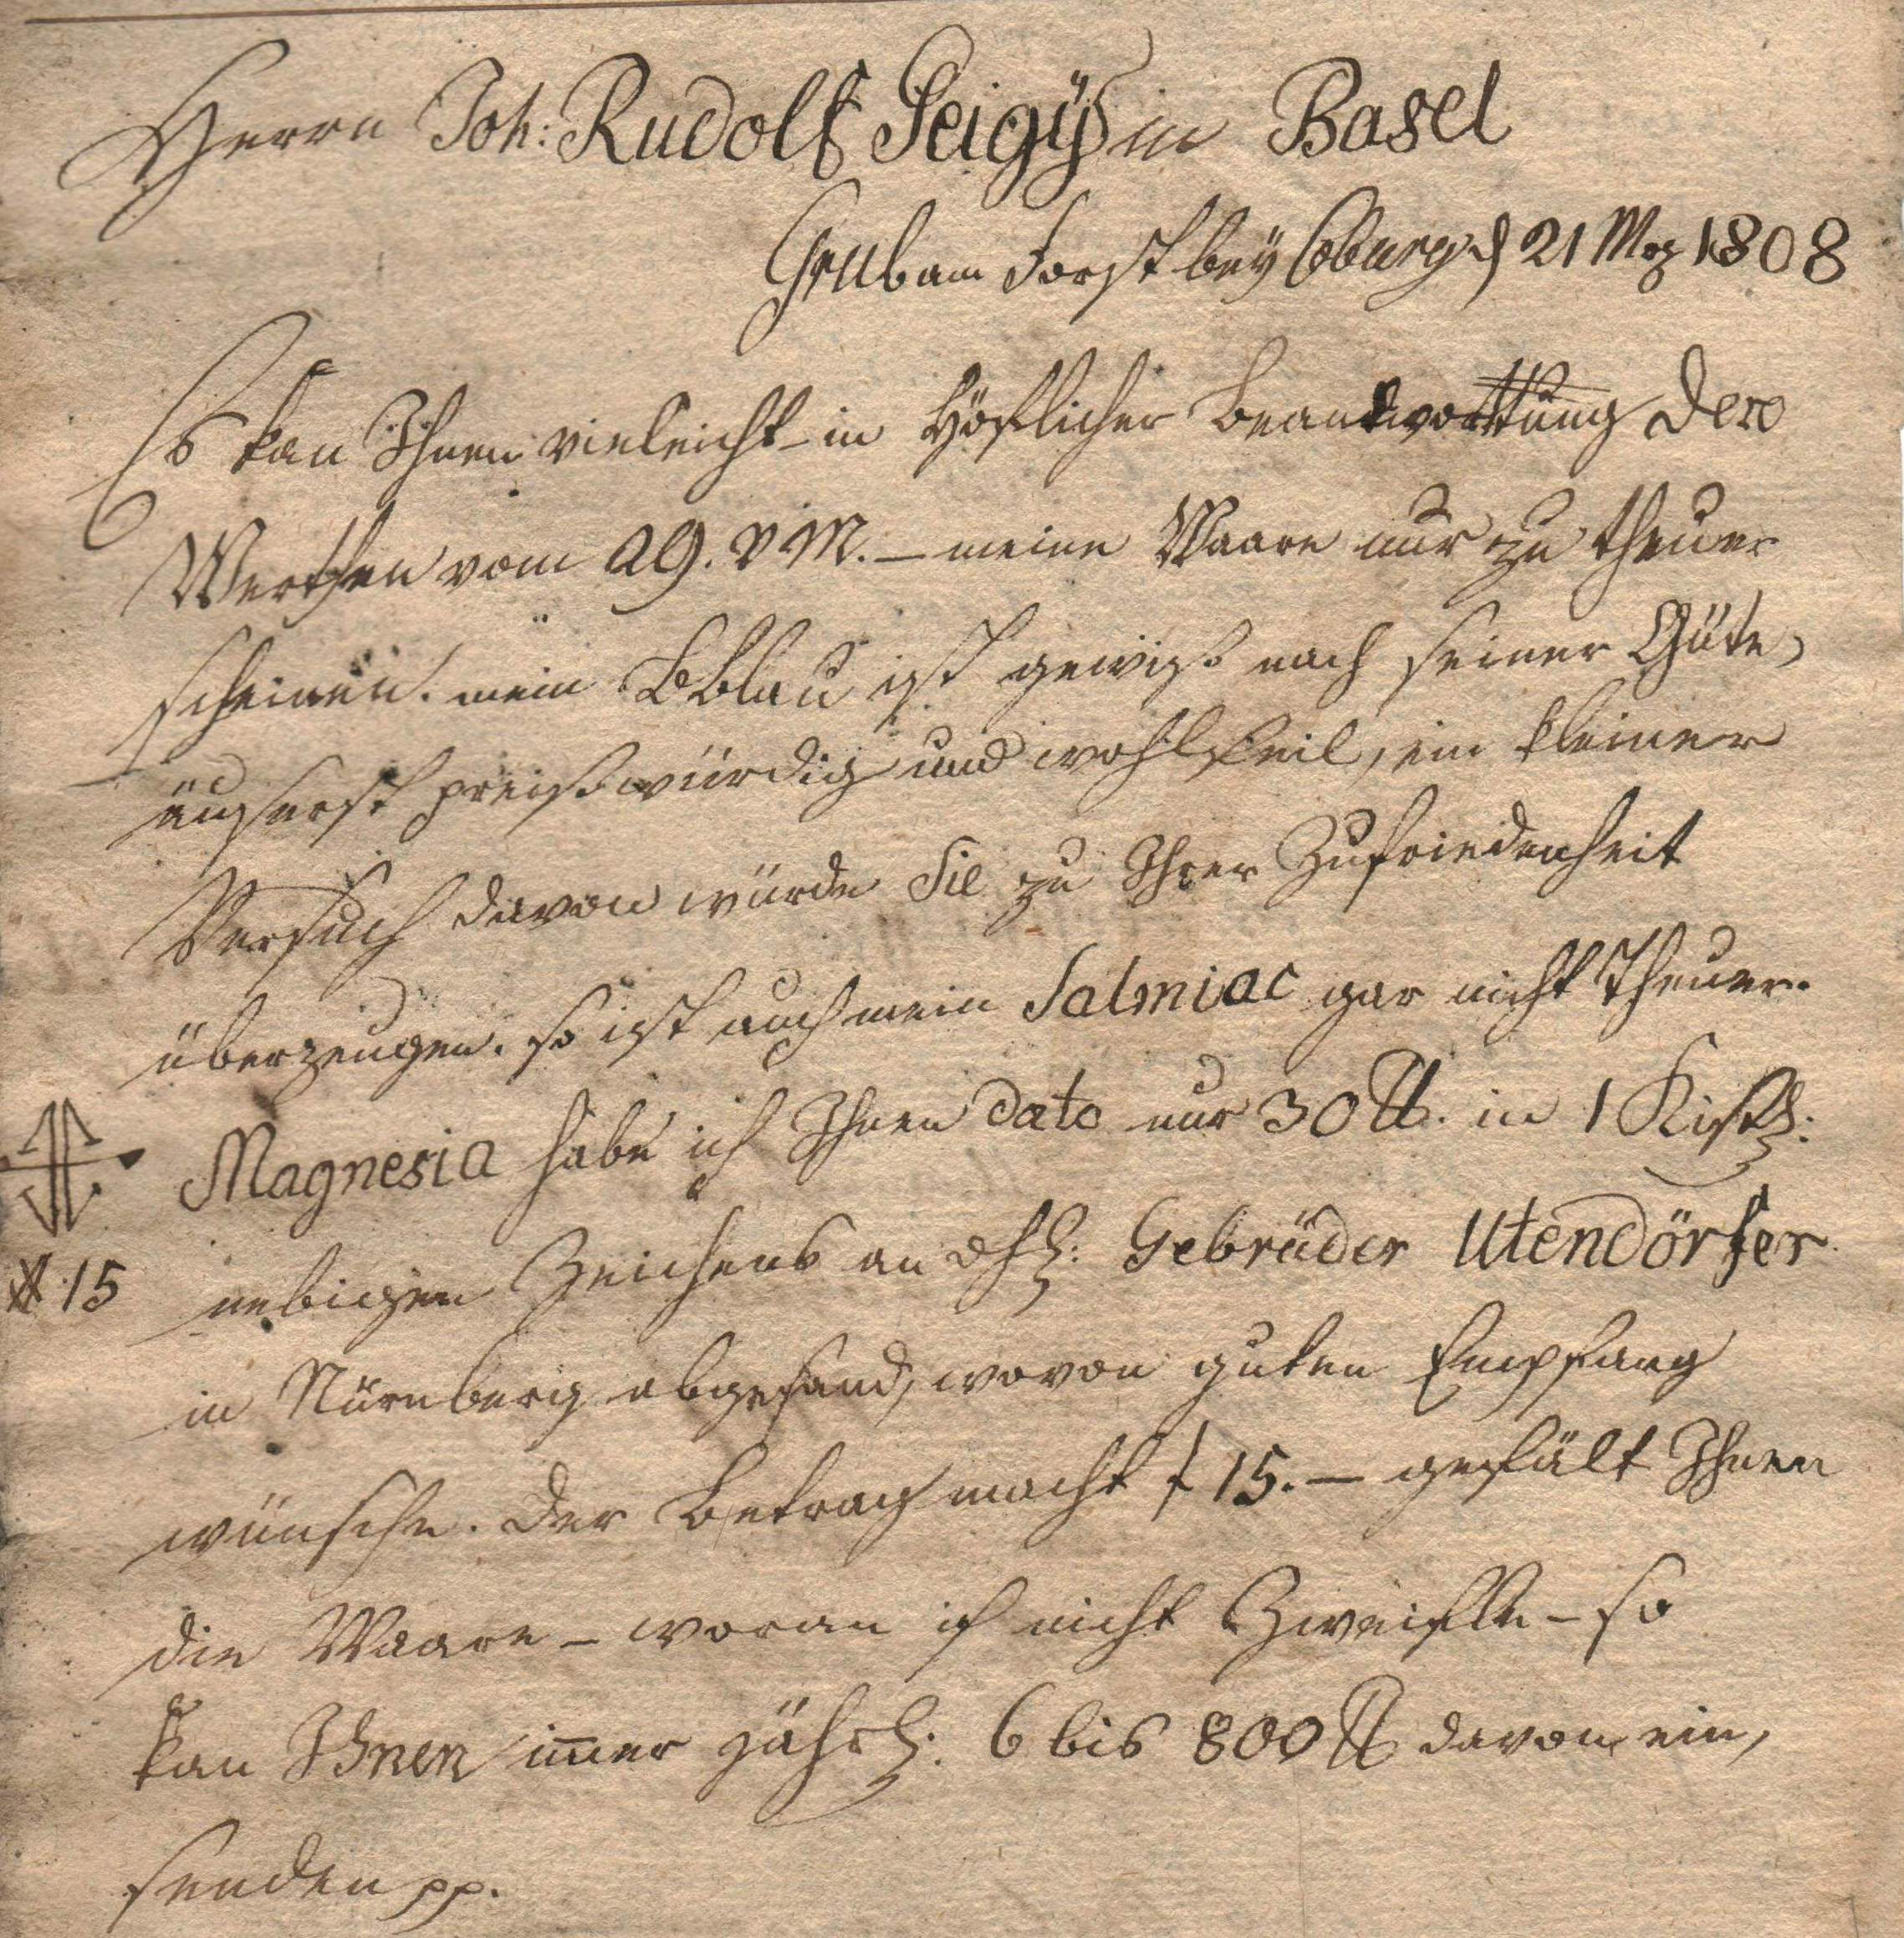 Herrn Joh: Rudolf Geigÿ in Basel
Grub am Forst beÿ Coburg d 21 Mrz 1808
Es kan Ihnen vieleicht in höflicher Beantwortung Dero
Werthen vom 29. v M. – meine Waare nur zu theuer
scheinen. mein Bblau ist gewiß nach seiner Güte,
äuserst preißwürdig und wohlfeil, ein kleiner
Versuch davon würde Sie zu Ihrer Zufriedenheit
überzeugen. so ist auch mein Salmiac gar nicht theuer.
Magnesia habe ich Ihnen dato nur 30 ℔. in 1 Kistl:
# 15 nebigen Zeichens an HH: Gebrüder Utendörfer
in Nürnberg abgesand, wovon guten Empfang
wünsche. Der Betrag macht f 15. – gefält Ihnen
die Waare – woran ich nicht Zweifle – so
kan Ihnen im̄er jährl: 6 bis 800 ℔ davon ein,
senden pp.